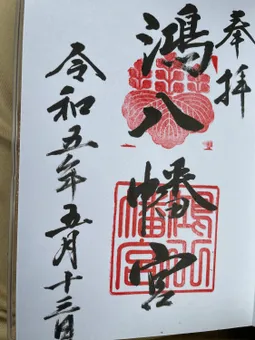 奉拝
鴻八幡宮
令和五年五月十三日
鴻八
幡宮